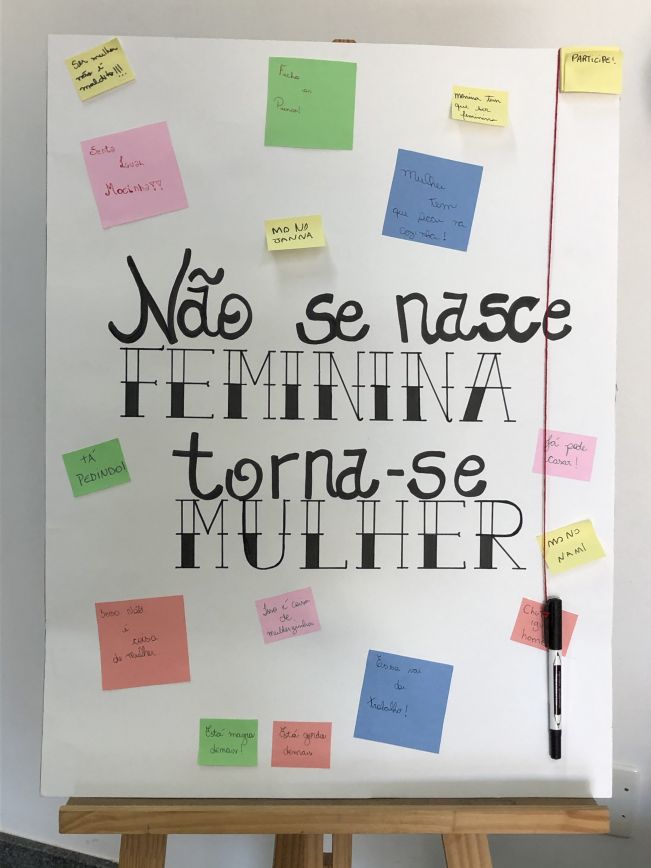 Ser mulher
não é
maldito!!!
Fecha
as
Pernas!
Menina tem
que ser
feminina
PARTICIPE!
Senta
Igual
Mocinha!!
Mulher
tem
que ficar na
cozinha!
MO NO
JANNA
Não se nasce
FEMININA
torna-se
MULHER
TÁ
PEDINDO!
Já pode
casar!
MO NO
NAMI
Isso Não
é coisa
de mulher
Isso é coisa
de
mulherzinha
Essa vai
dar
trabalho!
Está magra
demais!
Está gorda
demais